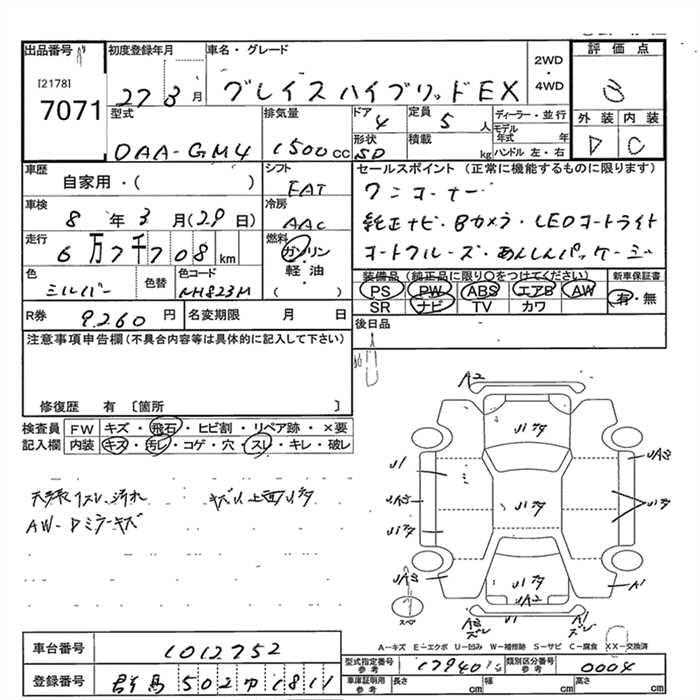 出品番号
[2178]
7071
初度登録年月
27 8 月
車名・グレード
グレイスハイブリッドEX
2WD
・
4WD
評価点
3
外装 内装
D C
型式
DAA-GM4
排気量
1500cc
ドア 4
形状 SD
定員 5 人
積載 kg
ディーラー・並行
モデル年式 年
ハンドル 左・右
車歴
自家用・( )
シフト
FAT
セールスポイント (正常に機能するものに限ります)
ワンオーナー
純正ナビ・Bカメラ・LEDオートライト
オートクルーズ・あんしんパッケージ
車検
8 年 3 月 (29 日)
冷房
AAC
走行
6万7千708 km
燃料
ガソリン
・
軽油
( )
色
シルバー
色替
色コード
NH823M
装備品 (純正品に限り○をつけてください)
PS PW ABS エアB AW
SR ナビ TV カワ
新車保証書
有・無
R券 9,260 円
名変期限 月 日
後日品
注意事項申告欄(不具合内容等は具体的に記入して下さい)
修復歴 有 〔箇所 〕
検査員記入欄
FW キズ・飛石・ヒビ割・リペア跡・×要
内装 キズ・汚レ・コゲ・穴・スレ・キレ・破レ
天張スレ、汚れ
AW-Dミラーキズ
A2
U1
A1
スペア
A-キズ E-エクボ U-凹み W-補修跡 S-サビ C-腐食 XX-交換済
車台番号 1012752
登録番号 群馬 502 ゆ 1811
型式指定番号 参考 17940
類別区分番号 参考 0004
車庫証明用 参考 長さ cm 幅 cm 高さ cm